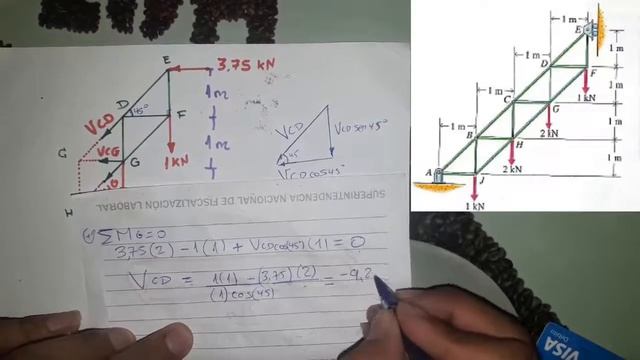 E
3,75 kN
1m
D
45°
F
VCD
C
VCG
G
1m
1KN
θ
H
VCD
VCDsen45°
45°
VCDcos45°
SUPERINTENDENCIA NACIONAL DE FISCALIZACIÓN LABORAL
(+) ΣMG=0
3,75(2) - 1(1) + VCDcos45°(1) = 0
VCD = 1(1) - (3,75)(2) = -9,2
(1) cos(45)
1 m
E
1 m
1 m
D
F
1 m
1 kN
1 m
C
G
1 m
2 kN
1 m
B
H
1 m
A
2 kN
J
1 kN
VISA